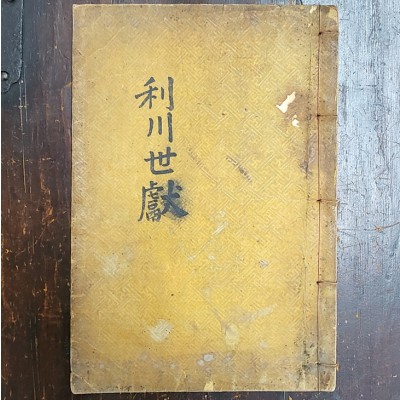 利川世獻